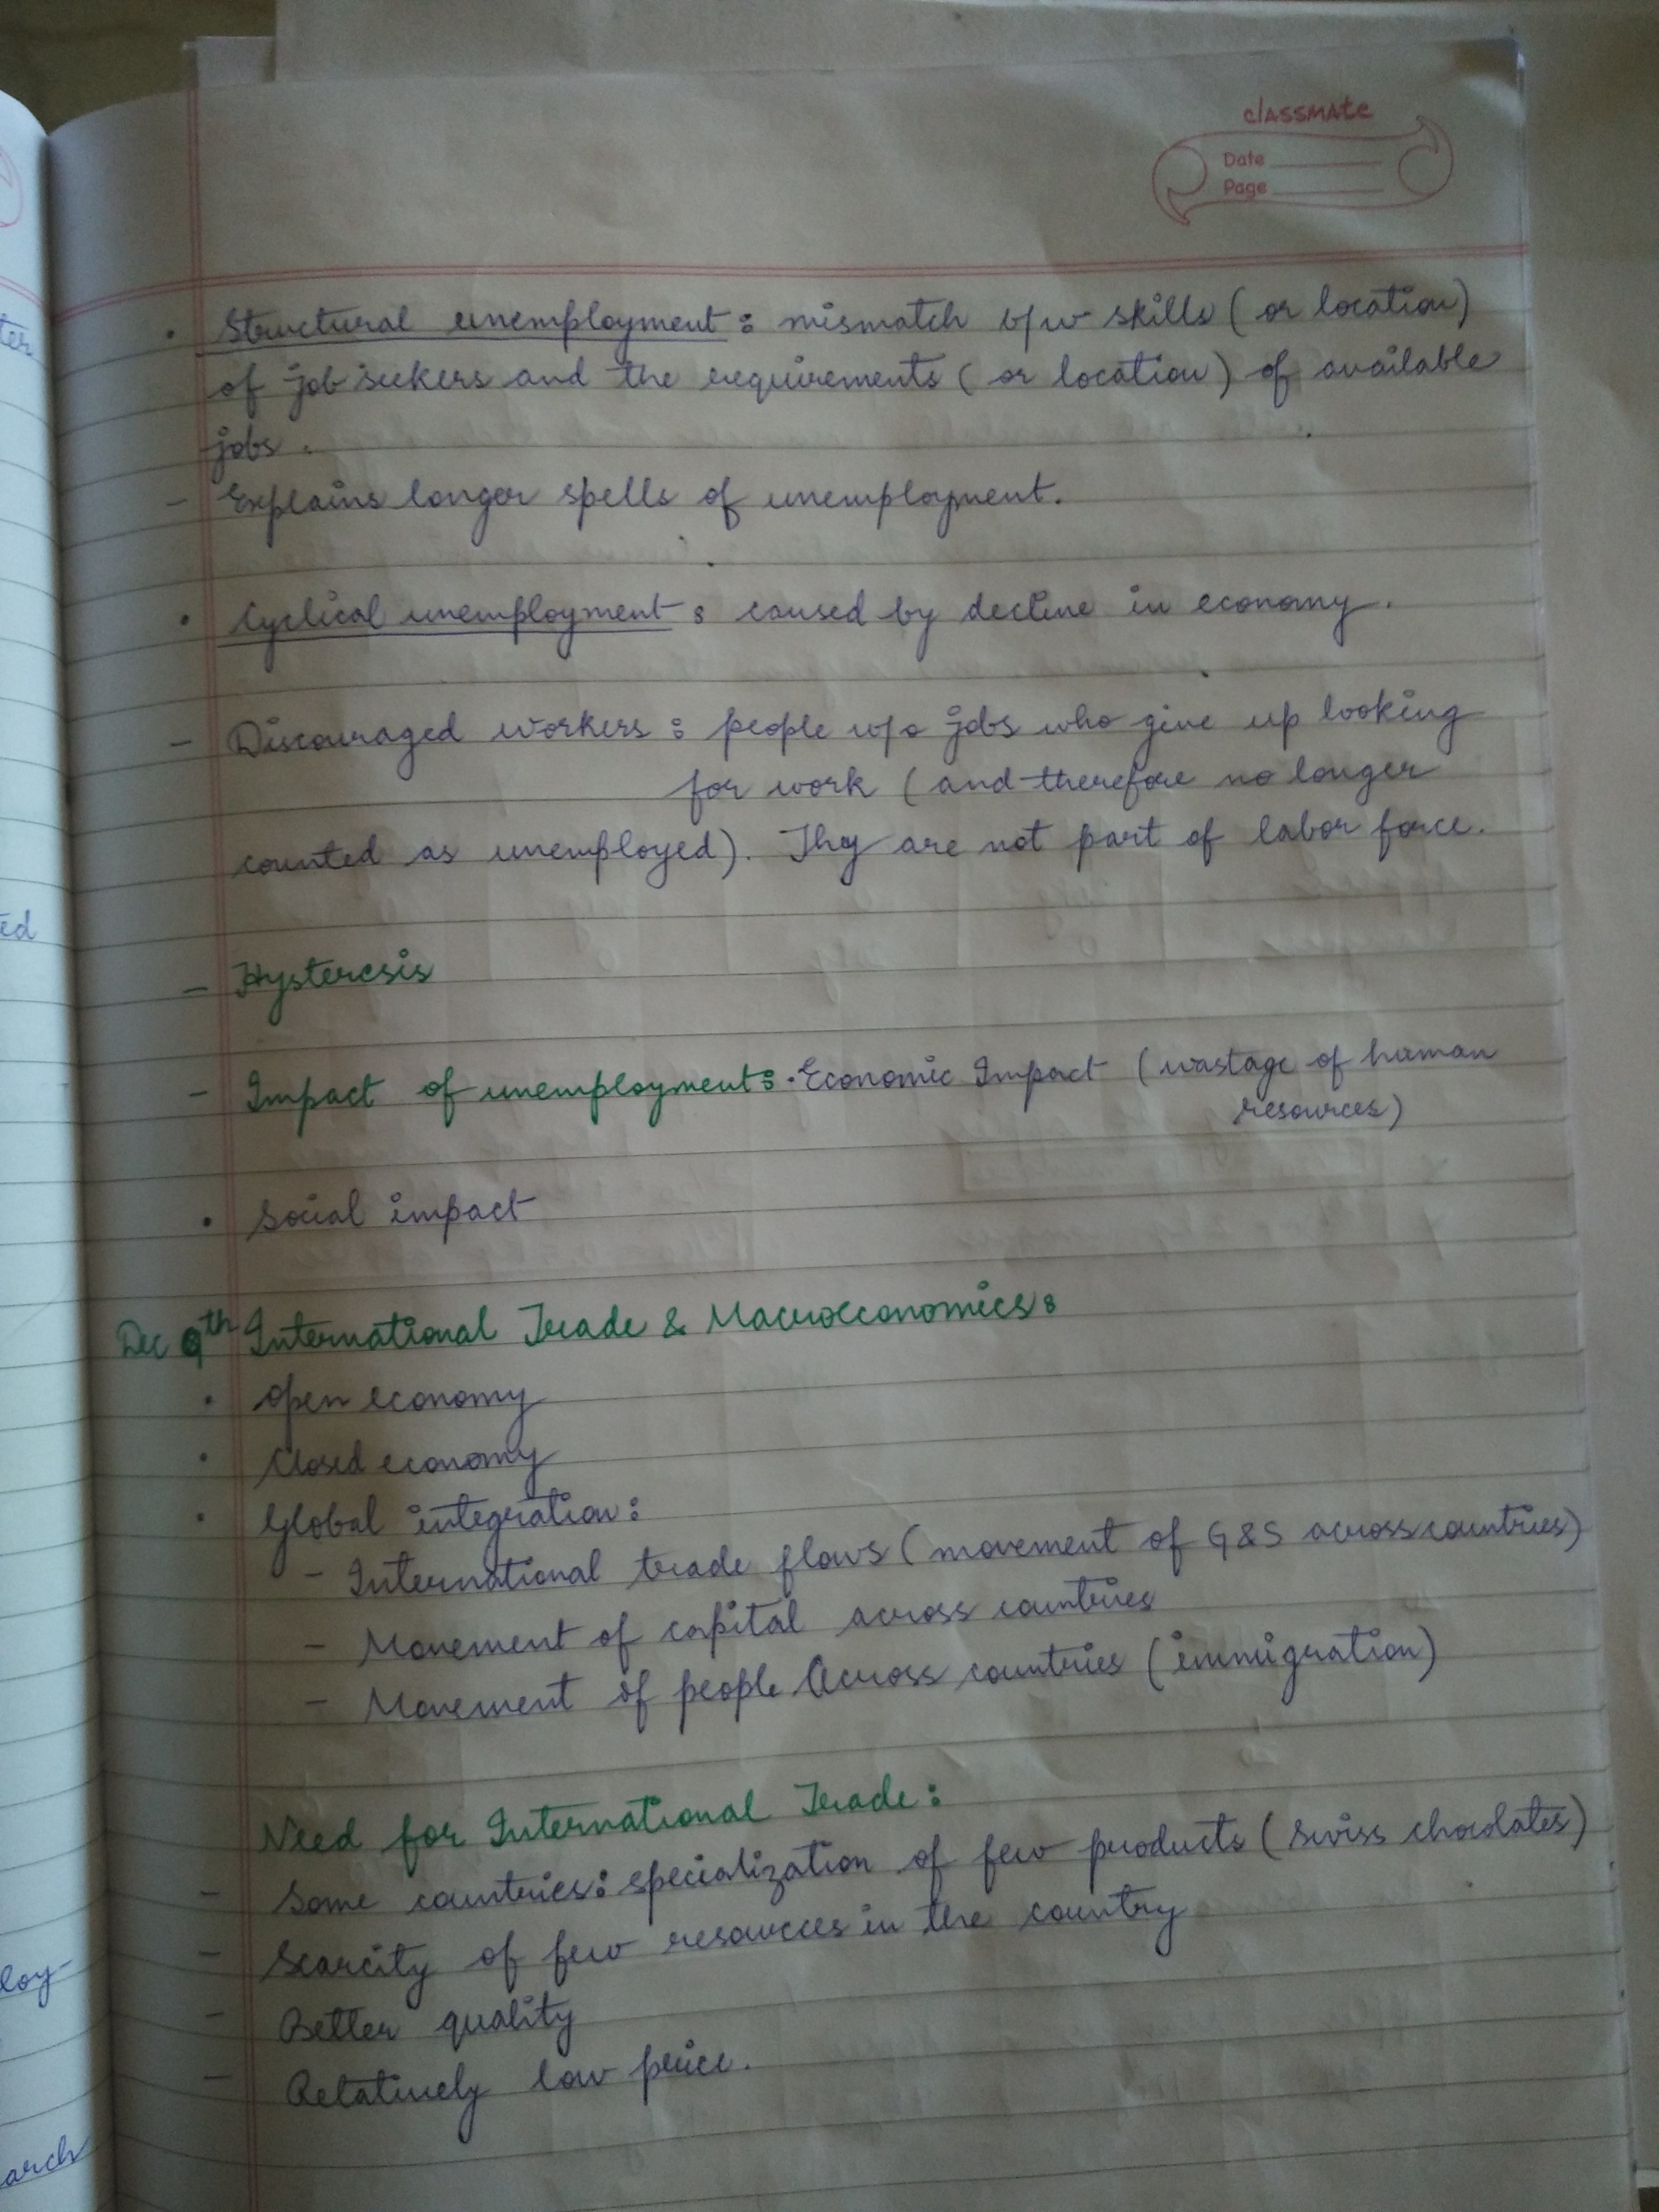 classmate
Date
Page
• Structural unemployment : mismatch b/w skills (or location)
of job seekers and the requirements (or location) of available
jobs.
- Explains longer spells of unemployment.
• Cyclical unemployment : caused by decline in economy.
- Discouraged workers : people w/o jobs who give up looking
for work (and therefore no longer
counted as unemployed). They are not part of labor force.
- Hysteresis
- Impact of unemployment : • Economic Impact (wastage of human
resources)
• Social impact
Dec 9th International Trade & Macroeconomics :
• Open economy
• Closed economy
• Global integration :
- International trade flows (movement of G&S across countries)
- Movement of capital across countries
- Movement of people Across countries (immigration)
Need for International Trade :
- Some countries : specialization of few products (Swiss chocolates)
- Scarcity of few resources in the country
- Better quality
- Relatively low price.
ter
ed
loy-
arch